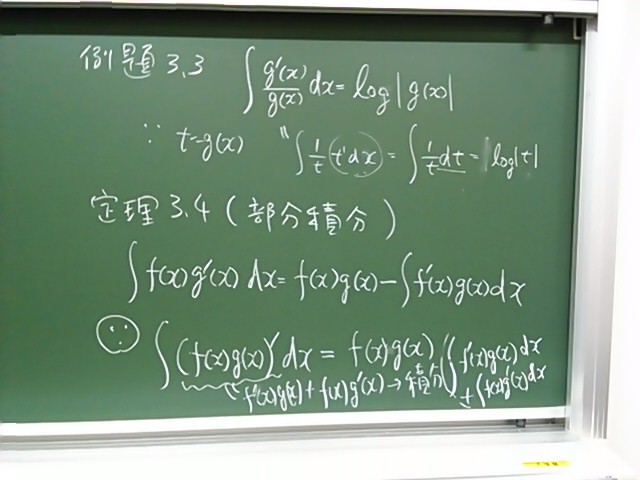 例題 3.3 ∫ g'(x)/g(x) dx = log|g(x)|
∵ t=g(x) " ∫ 1/t t'dx = ∫ 1/t dt = log|t|
定理 3.4 (部分積分)
∫ f(x)g'(x) dx = f(x)g(x) − ∫ f'(x)g(x)dx
∫ (f(x)g(x))' dx = f(x)g(x)
f'(x)g(x) + f(x)g'(x) → 積分
∫ f'(x)g(x)dx
+ ∫ f(x)g'(x)dx